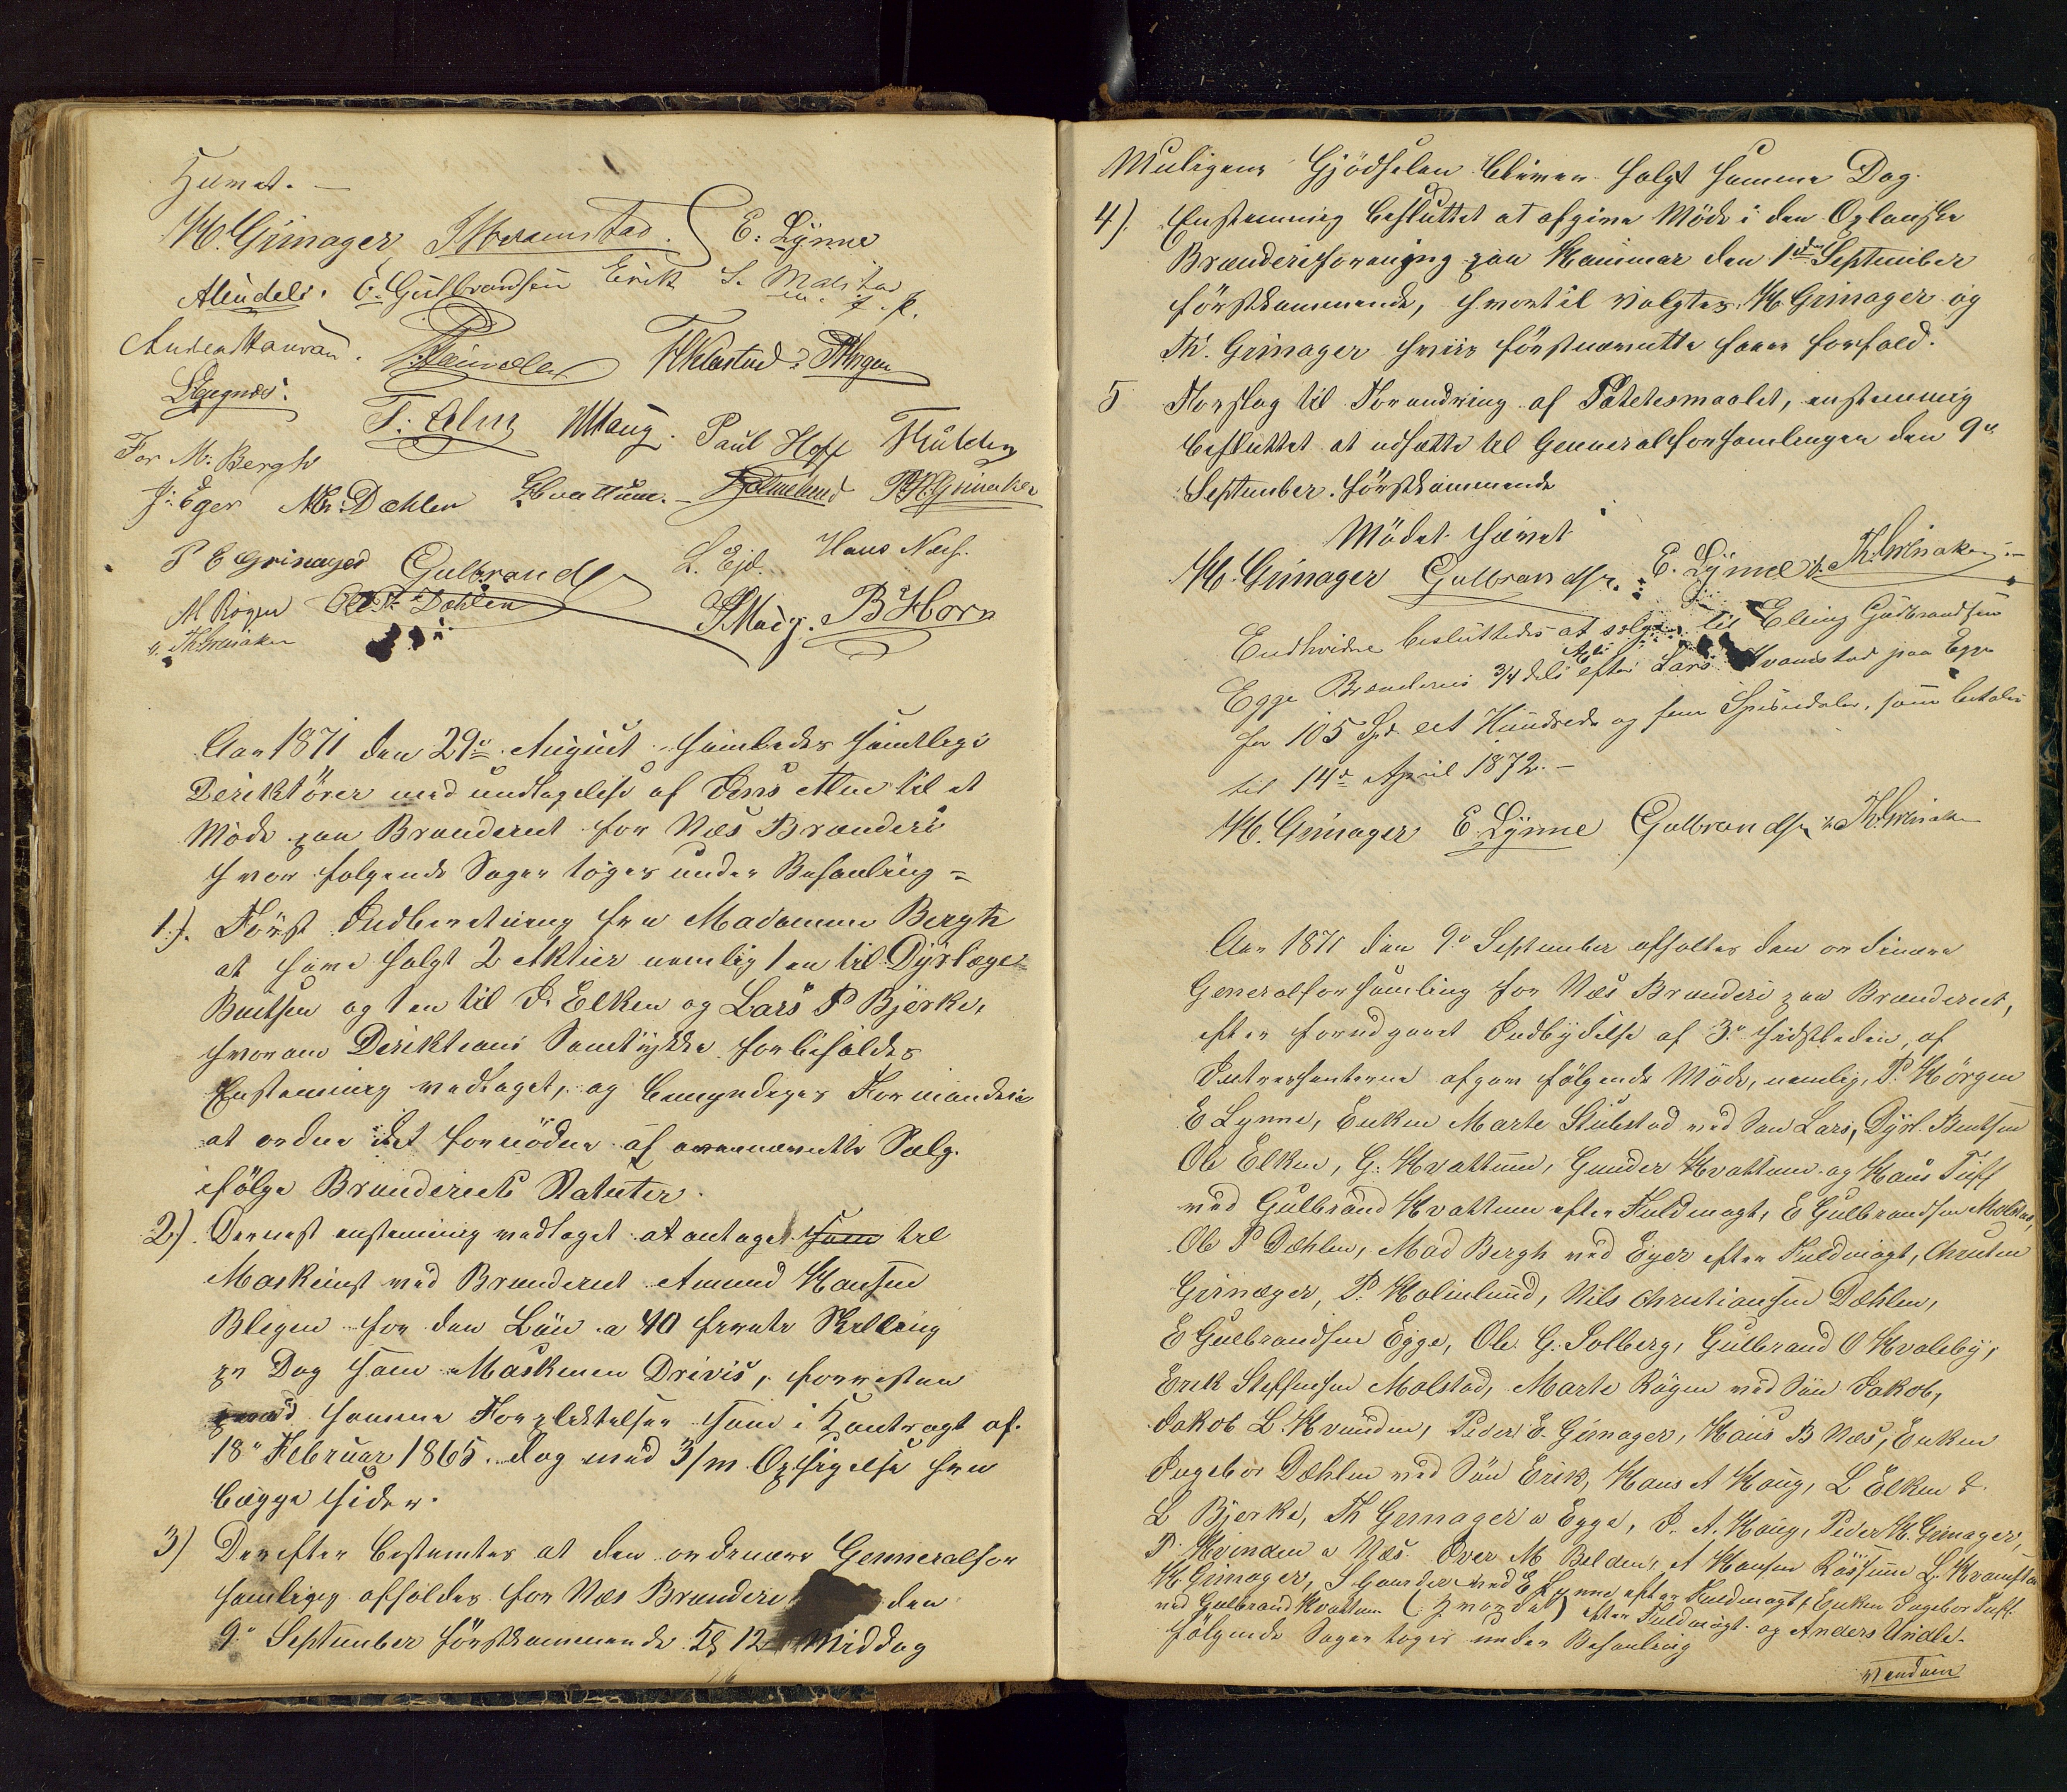 Hævet. —
H. Grinager J Kvamstad. E. Lynne
Alundels. E. Gulbrandsen Erik S. Malstad
m. f. P.
Anders Hauvan. Th Kilestad P Hørgen
For M: Bergh T: Alm Haug. Paul Hoff
J: Eger N. Chr. Dæhlen G Kvattum. — P Holmelund P. H. Grinaker
P E Grinager Gulbrandsen L. Ejd. Hans Næss.
M Røgen Ole P. Dæhlen B Horn
v. Th. Grinaker
Aar 1871 den 29de August samledes samtlige
Deriktører med undtagelse af Jens Alm til et
Møde paa Brænderiet for Næs Brænderi
hvor følgende Sager toges under Behanling =
1). Først Indberetning fra Madamme Bergh
at have solgt 2 Aktier nemlig 1 en til Dyrlæge
Bentsen og 1 en til O. Elken og Lars P Bjerke,
hvorom Deriktions Samtykke forbeholdes
Enstemmig vedtaget, og bemyndiges Formanden
at ordne det fornødne af overnævnte Salg.
ifølge Brænderiets Statuter.
2). Dernæst enstemmig vedtaget at antaget som til
Maskinist ved Brænderiet Amund Hansen
Blegen for den Løn a 40 førreti Skilling
pr Dag som Maskinen Drives, forresten
med samme Forpliktelser som i Kontragt af
18de Februar 1865. dog med 3/m Opsigelse fra
begge Sider.
3) Derefter bestemtes at den ordenære Genneralfor
samling afholdes for Næs Brænderi den
9de September førstkommende Kl 12 Middag
Muligens Gjødselen bliver solgt samme Dag.
4). Enstemmig besluttet at afgive Møde i den Oplanske
Brænderiforening paa Hammar den 1ste September
førstkommende, hvortil valgtes H Grinager og
Th. Grinager hvis førstnævnte haver forfald.
5 Forslag til Forandring af Potetesmaalet, enstemmig
besluttet at udsætte til Genneralforsamlingen den 9de
September førstkommende
Mødet hævet
H. Grinager Gulbrandsen. E. Lynne v. Th. Grinaker
Endvidre besluttedes at sælge til Elling Gudbrandsen
Egge Brænderiets 3/4 dels Akti efter Lars Kvamstad paa Egge
for 105 Spd et Hundrede og fem Speciedaler, som betales
til 14de April 1872. —
H. Grinager E. Lynne Gulbrandsen v. Th. Grinaker
Aar 1871 den 9de September afholtes den ordinære
Generalforsamling for Næs Brænderi paa Brænderiet,
efter forudgaaet Indbydelse af 3de sidstleden, af
Intressenterne afgav følgende Møde, nemlig, P. Hørgen
E Lynne, Enken Marte Stubstad ved Søn Lars, Dyrl. Bentsen
Ole Elken, G. Kvattum, Gunder Kvattum og Hans Tuff
ved Gulbrand Kvattum efter Fuldmagt, E Gulbrandsen Molstad,
Ole P Dæhlen, Mad Bergh ved Eger efter Fuldmagt, Christen
Grinager, P. Holmlund, Nils Christiansen Dæhlen,
E Gulbrandsen Egge, Ole G. Solberg, Gulbrand O Kvaleby,
Erik Steffensen Molstad, Marte Røgen ved Søn Jakob,
Jakob L. Kvinden, Peder E. Grinager, Hans B Næs, Enken
Ingebor Dæhlen ved Søn Erik, Hans A Haug, L Elken &
L Bjerke, Th Grinager a Egge, J. A. Haug, Peder H. Grinager,
P. Kvinden a Næs. Iver M Belden, A Hansen Røssum L. Kvamstad
H. Grinager, S Gaarder ved E Lynne efter Fuldmagt, Enken Ingebor Tuff
ved Gulbrand Kvattum efter Fuldmagt og Anders Undli.
følgende Sager toges under Behanling
vendum